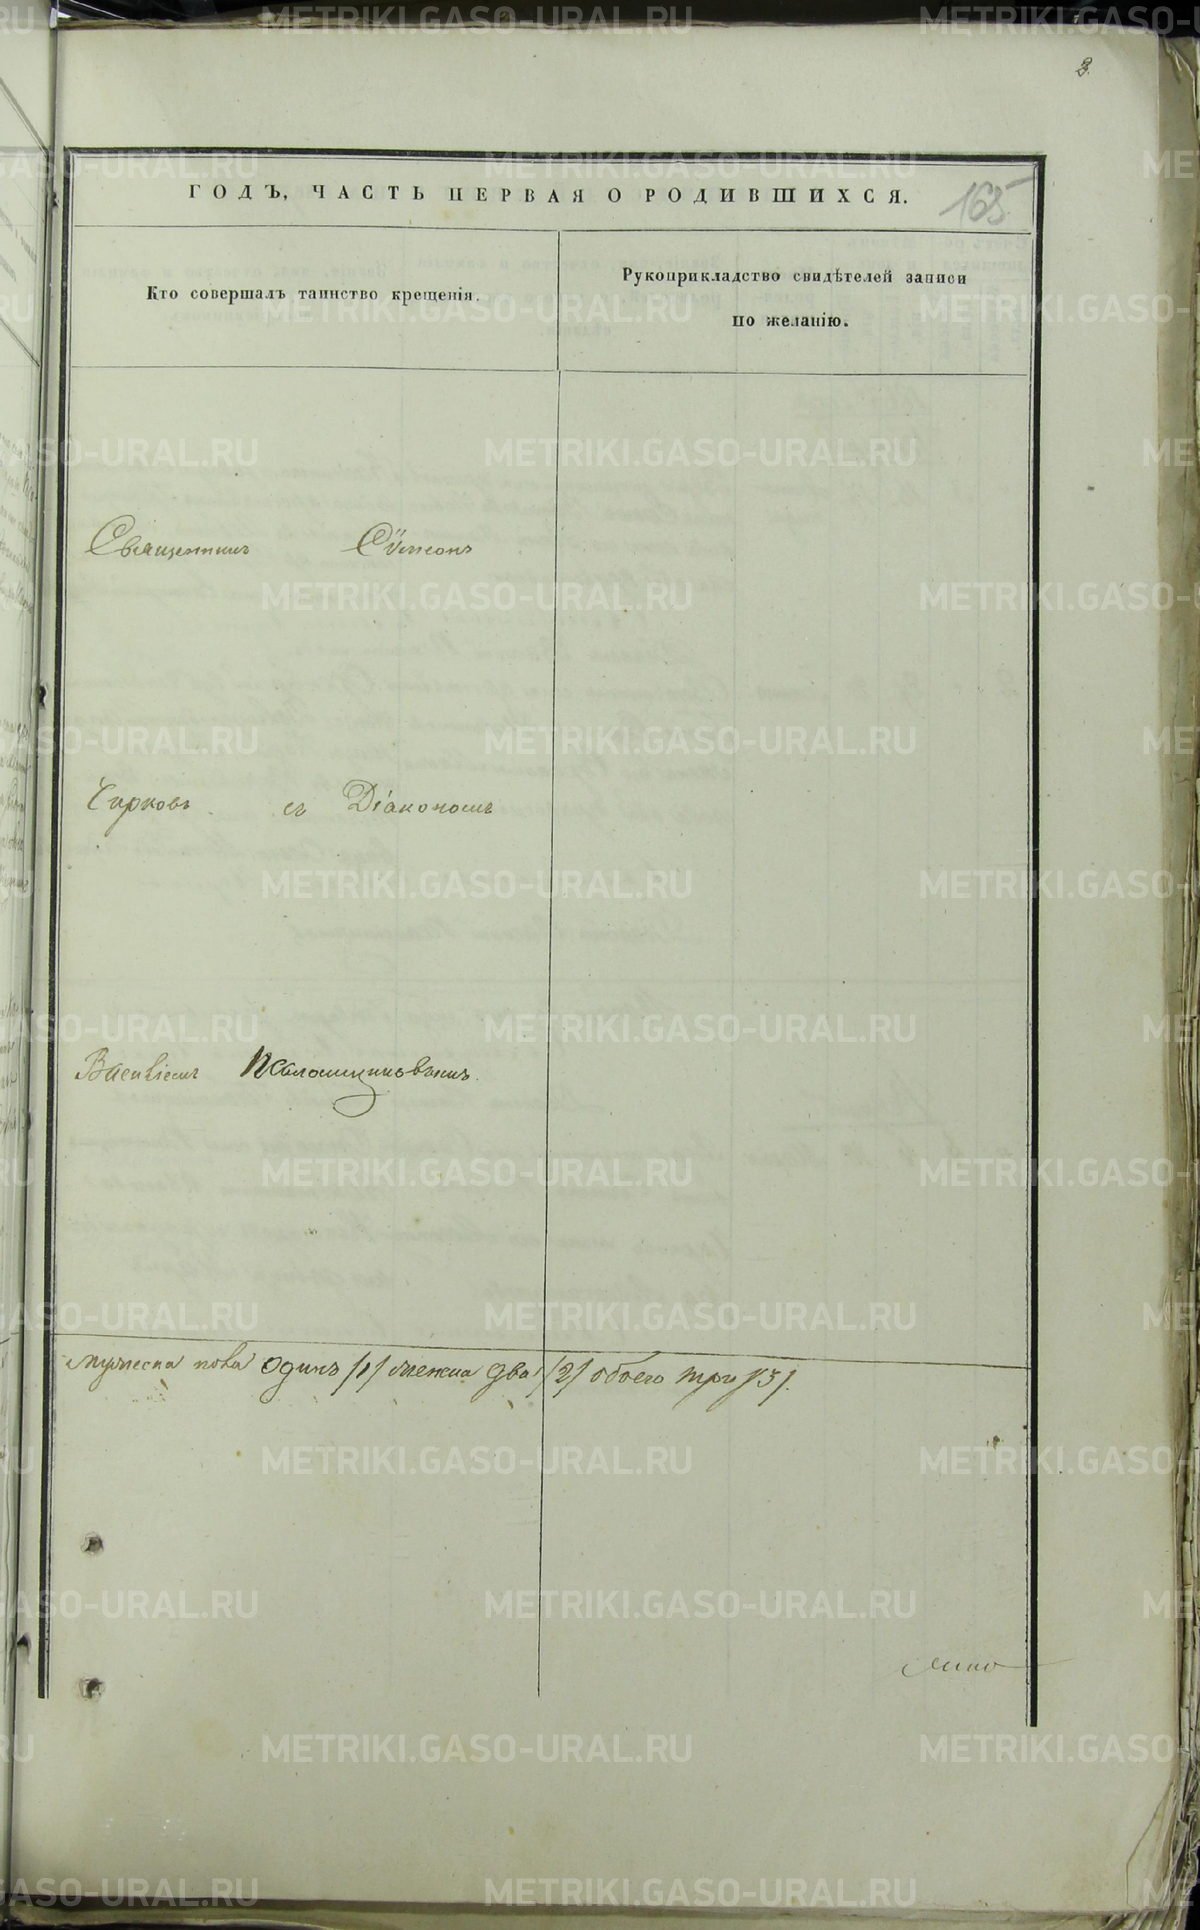 3.
ГОДЪ, ЧАСТЬ ПЕРВАЯ О РОДИВШИХСЯ.
165
Кто совершалъ таинство крещенія.
Рукоприкладство свидѣтелей записи
по желанію.
Священникъ Сѵмеонъ
Чирковъ съ Діакономъ
Василіемъ Каломщиковымъ.
мужеска пола одинъ /1/ женска два /2/ обоего три /3/.
METRIKI.GASO-URAL.RU